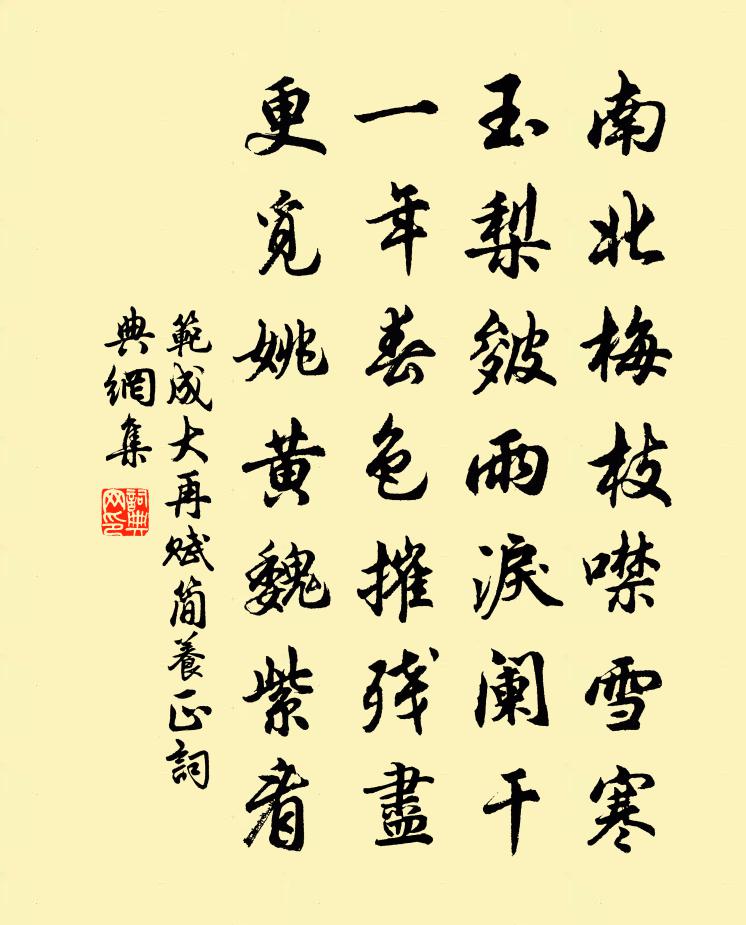 南北梅枝噤雪寒
玉梨皴雨淚闌干
一年春色摧殘盡
更覓姚黃魏紫看
範成大再賦簡養正詞
典網集
詞典
网印